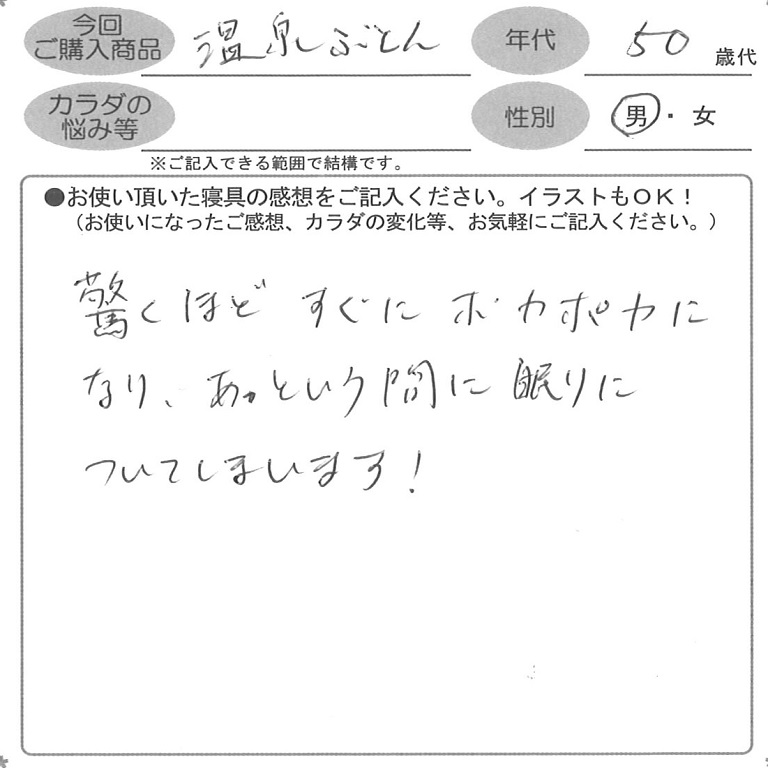 今回
ご購入商品 温泉ぶとん 年代 50 歳代
カラダの
悩み等 性別 男・女
※ご記入できる範囲で結構です。
●お使い頂いた寝具の感想をご記入ください。イラストもOK！
（お使いになったご感想、カラダの変化等、お気軽にご記入ください。）
驚くほど すぐに ポカポカに
なり、あっという間に眠りに
ついてしまいます！